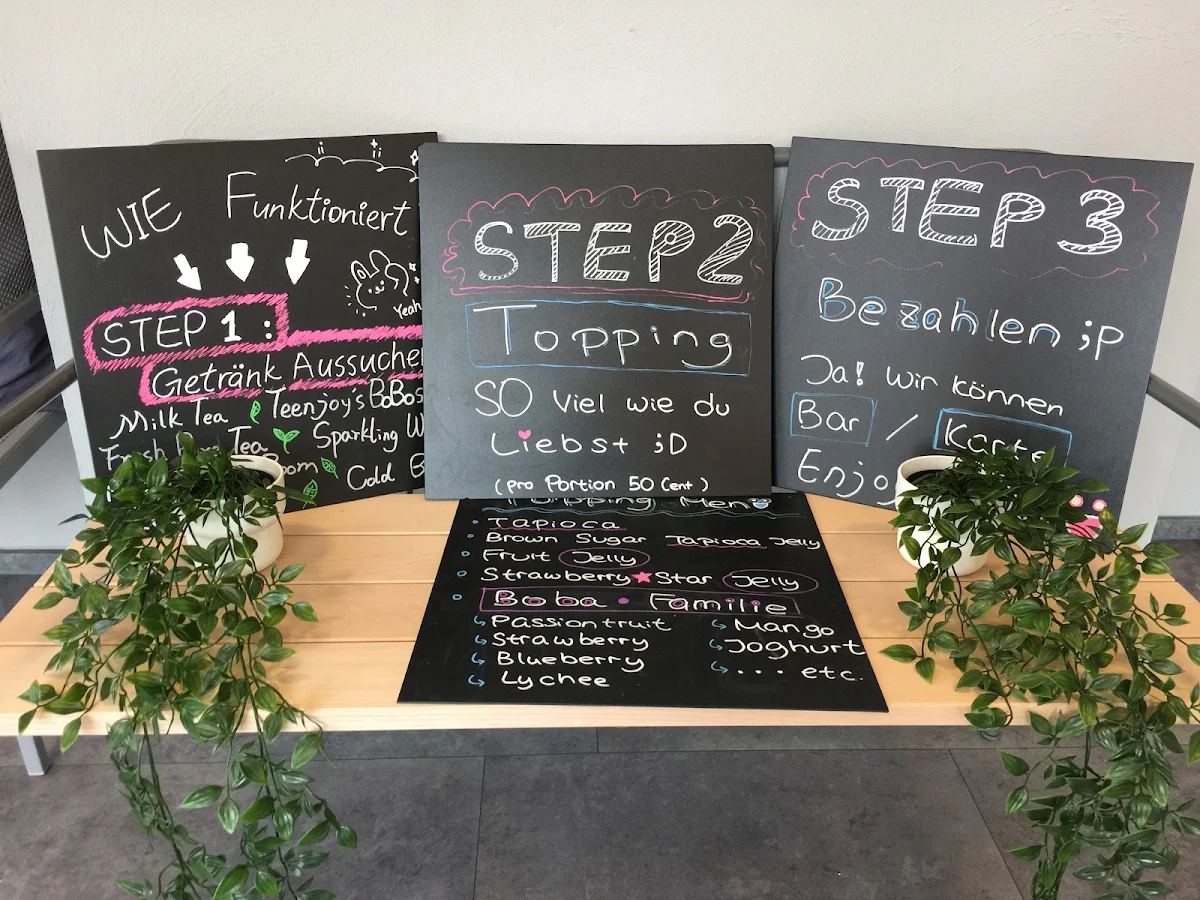 WIE Funktioniert
Yeah
STEP 1 :
Getränk Aussuche
Milk Tea Teenjoy's BoBos
Fresh Tea Sparkling W
Cold
STEP 2
Topping
SO Viel wie du
Liebst ;D
(pro Portion 50 Cent)
Topping Menü
Tapioca
Brown Sugar Tapioca Jelly
Fruit Jelly
Strawberry Star Jelly
Boba • Familie
Passionfruit
Strawberry
Blueberry
Lychee
Mango
Joghurt
... etc.
STEP 3
Bezahlen ;P
Ja! Wir können
Bar / Karte
Enjo